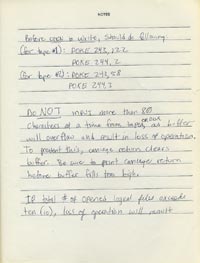 NOTES
Before READ or Write, should do following:
(for tape #1): POKE 243,122
POKE 244,2
(for tape #2): POKE 243,58
POKE 244,3
Do NOT input more than 80
characters at a time from tape, or buffer
will overflow and result in loss of operation.
To prevent this, carriage return clears
buffer. Be sure to print carriage return
before buffer fills too high.
If total # of opened logical files exceeds
ten (10), loss of operation will result